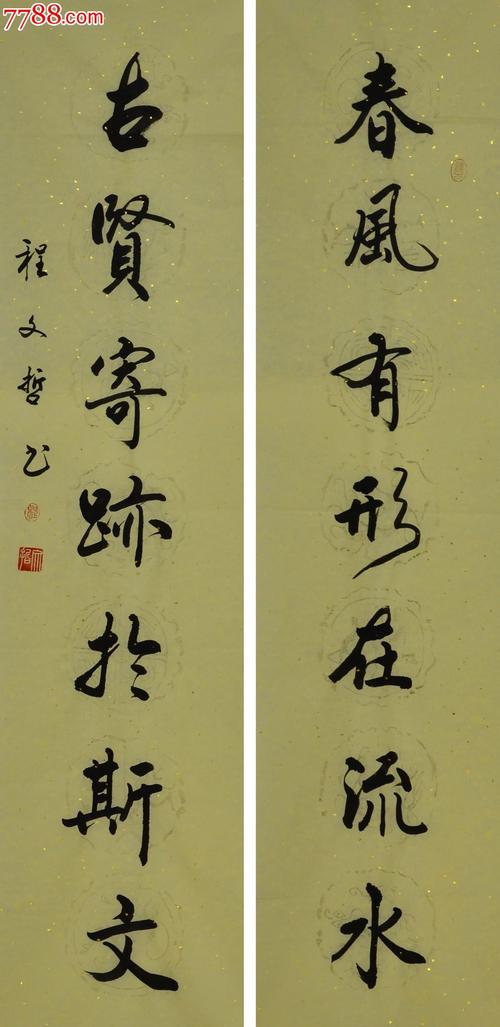 7788.com
春風有形在流水
古賢寄跡於斯文
程文哲书